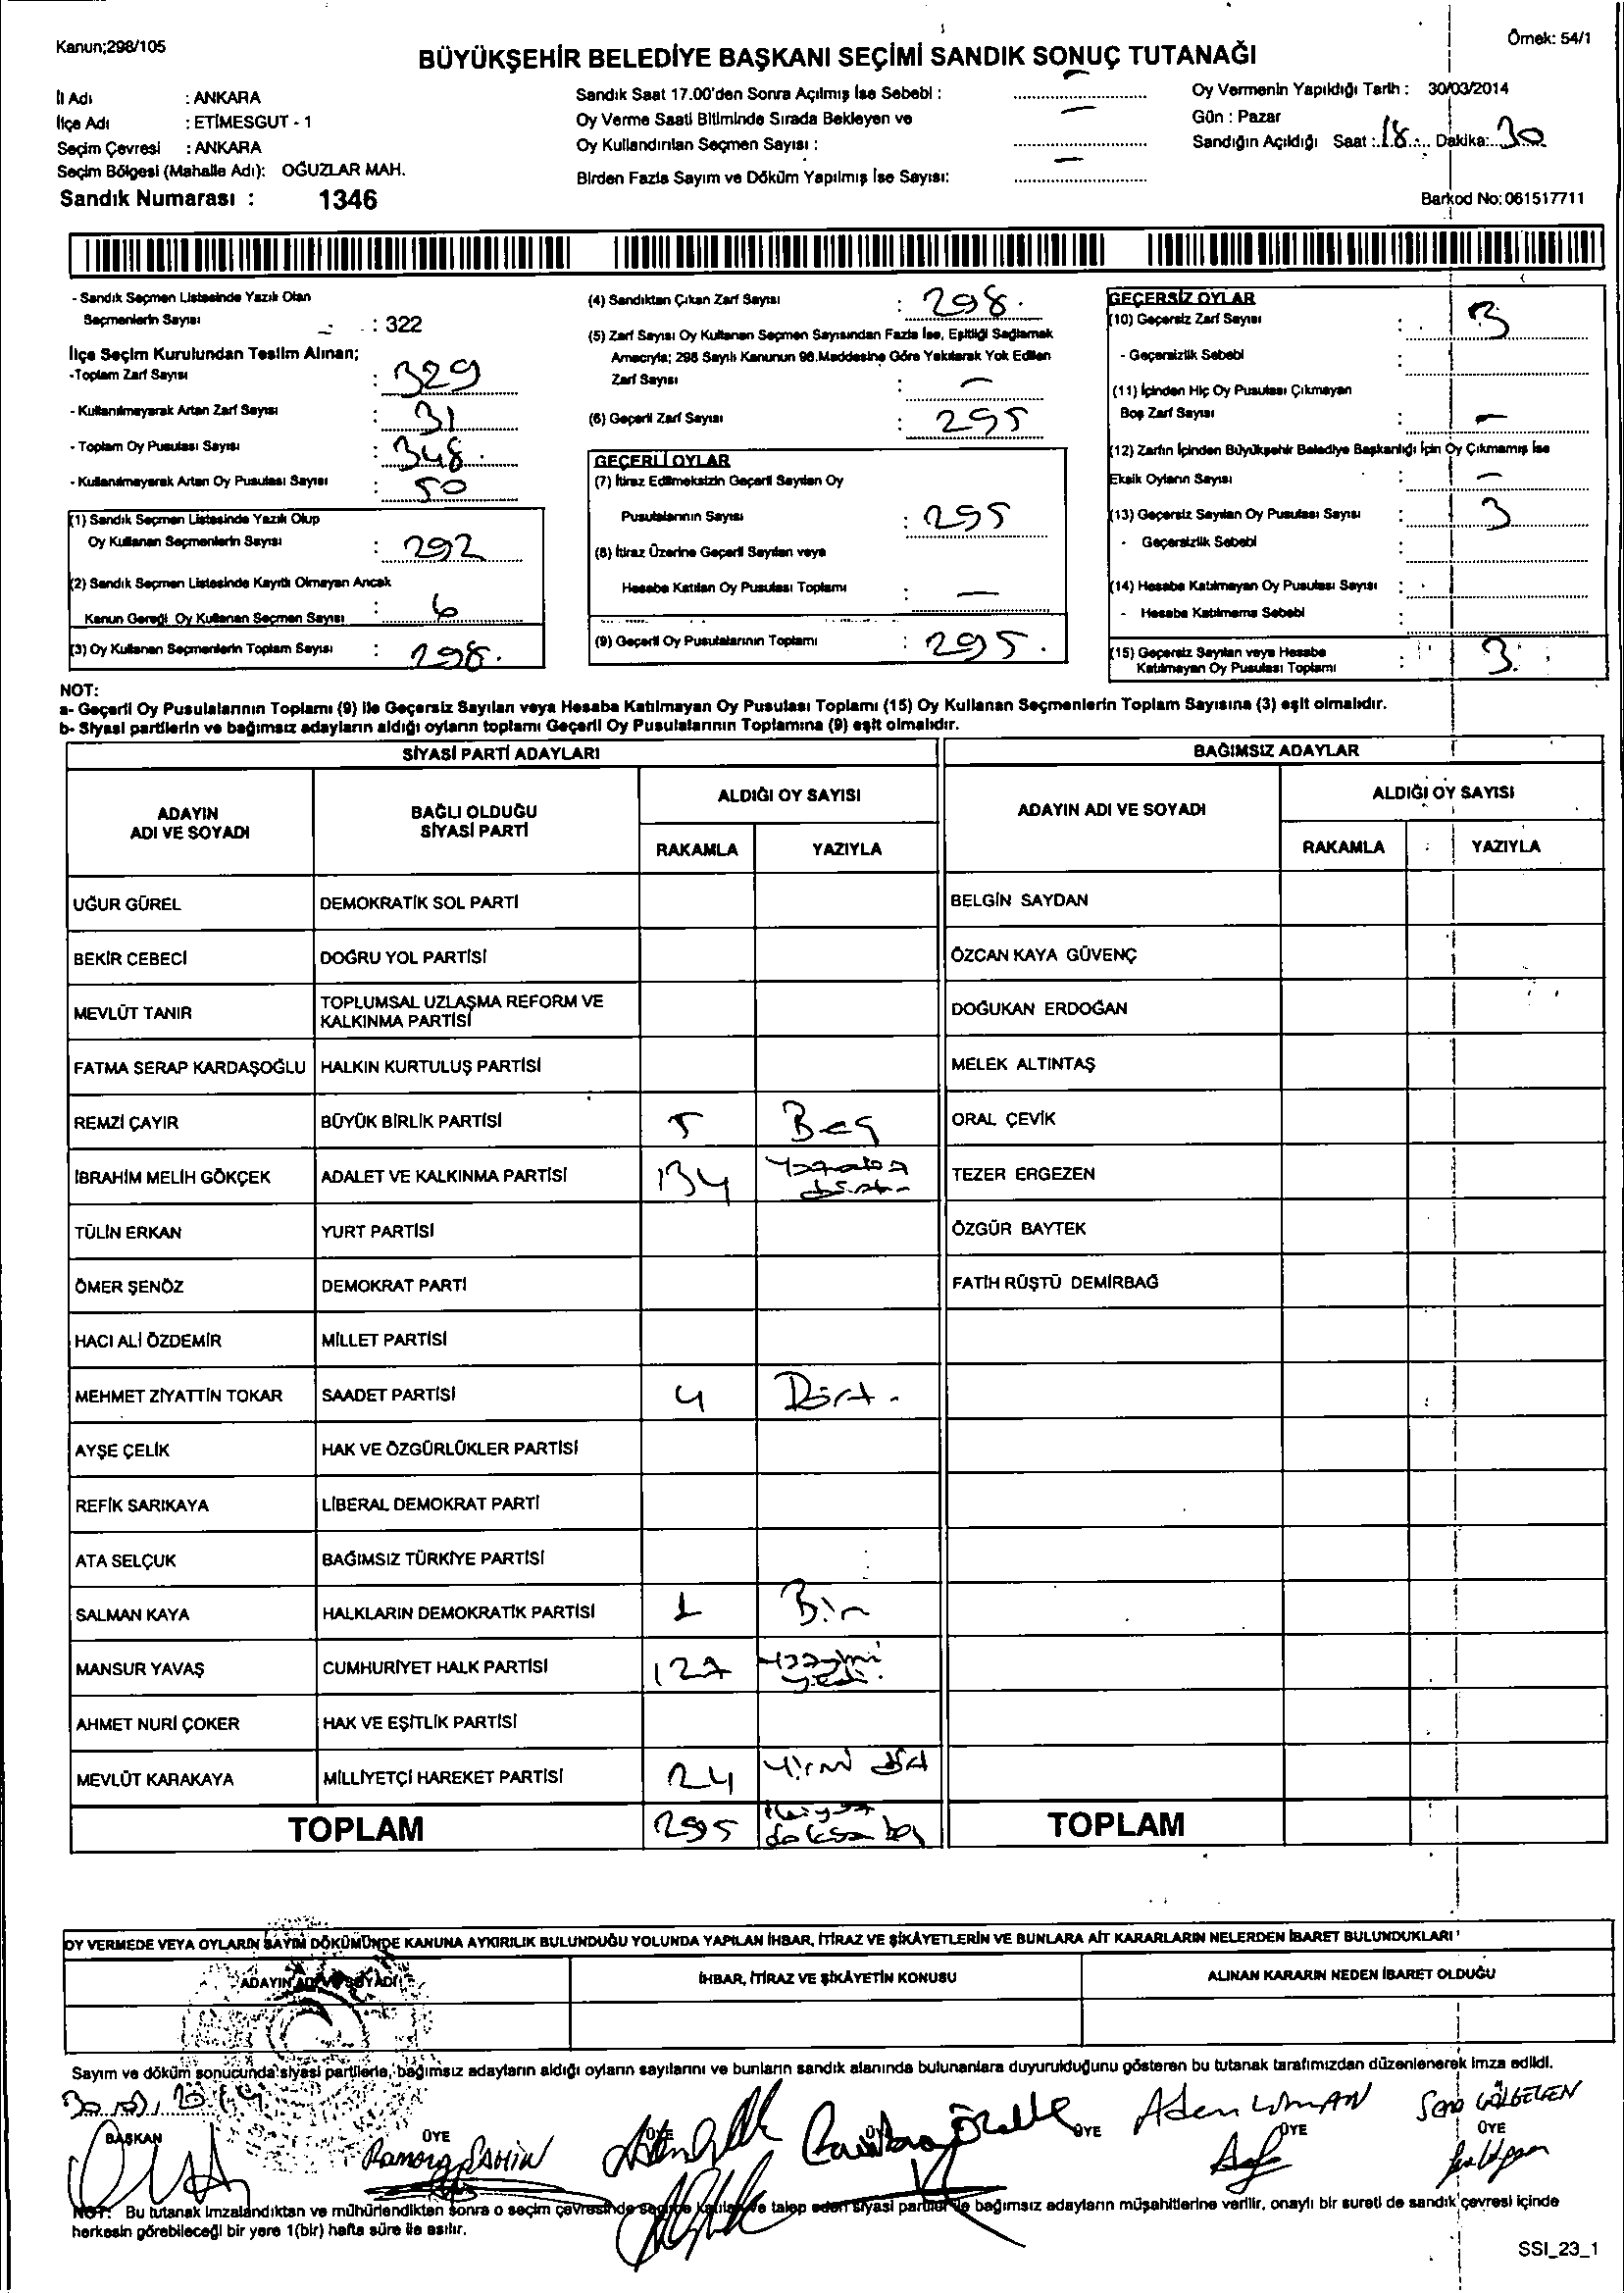 Kanun;298/105
Örnek: 54/1
BÜYÜKŞEHİR BELEDİYE BAŞKANI SEÇİMİ SANDIK SONUÇ TUTANAĞI
İl Adı : ANKARA
İlçe Adı : ETİMESGUT - 1
Seçim Çevresi : ANKARA
Seçim Bölgesi (Mahalle Adı): OĞUZLAR MAH.
Sandık Numarası : 1346
Sandık Saat 17.00'den Sonra Açılmış İse Sebebi : –
Oy Verme Saati Bitiminde Sırada Bekleyen ve
Oy Kullandırılan Seçmen Sayısı : –
Birden Fazla Sayım ve Döküm Yapılmış İse Sayısı: –
Oy Vermenin Yapıldığı Tarih : 30/03/2014
Gün : Pazar
Sandığın Açıldığı Saat : 18 Dakika: 30
Barkod No: 061517711
- Sandık Seçmen Listesinde Yazılı Olan
Seçmenlerin Sayısı : 322
İlçe Seçim Kurulundan Teslim Alınan;
-Toplam Zarf Sayısı : 329
- Kullanılmayarak Artan Zarf Sayısı : 31
- Toplam Oy Pusulası Sayısı : 348
- Kullanılmayarak Artan Oy Pusulası Sayısı : 50
(1) Sandık Seçmen Listesinde Yazılı Olup
Oy Kullanan Seçmenlerin Sayısı : 292
(2) Sandık Seçmen Listesinde Kayıtlı Olmayan Ancak
Kanun Gereği Oy Kullanan Seçmen Sayısı : 6
(3) Oy Kullanan Seçmenlerin Toplam Sayısı : 298.
(4) Sandıktan Çıkan Zarf Sayısı : 298.
(5) Zarf Sayısı Oy Kullanan Seçmen Sayısından Fazla İse, Eşitliği Sağlamak
Amacıyla; 298 Sayılı Kanunun 98.Maddesine Göre Yakılarak Yok Edilen
Zarf Sayısı : –
(6) Geçerli Zarf Sayısı : 295
GEÇERLİ OYLAR
(7) İtiraz Edilmeksizin Geçerli Sayılan Oy
Pusulalarının Sayısı : 295
(8) İtiraz Üzerine Geçerli Sayılan veya
Hesaba Katılan Oy Pusulası Toplamı : –
(9) Geçerli Oy Pusulalarının Toplamı : 295.
GEÇERSİZ OYLAR
(10) Geçersiz Zarf Sayısı : 3
- Geçersizlik Sebebi :
(11) İçinden Hiç Oy Pusulası Çıkmayan
Boş Zarf Sayısı : –
(12) Zarfın İçinden Büyükşehir Belediye Başkanlığı İçin Oy Çıkmamış İse
Eksik Oyların Sayısı : –
(13) Geçersiz Sayılan Oy Pusulası Sayısı : 3
- Geçersizlik Sebebi :
(14) Hesaba Katılmayan Oy Pusulası Sayısı :
- Hesaba Katılmama Sebebi :
(15) Geçersiz Sayılan veya Hesaba
Katılmayan Oy Pusulası Toplamı : 3.
NOT:
a- Geçerli Oy Pusulalarının Toplamı (9) ile Geçersiz Sayılan veya Hesaba Katılmayan Oy Pusulası Toplamı (15) Oy Kullanan Seçmenlerin Toplam Sayısına (3) eşit olmalıdır.
b- Siyasi partilerin ve bağımsız adayların aldığı oyların toplamı Geçerli Oy Pusulalarının Toplamına (9) eşit olmalıdır.
SİYASİ PARTİ ADAYLARI
ADAYIN ADI VE SOYADI
BAĞLI OLDUĞU SİYASİ PARTİ
ALDIĞI OY SAYISI
RAKAMLA YAZIYLA
UĞUR GÜREL DEMOKRATİK SOL PARTİ
BEKİR CEBECİ DOĞRU YOL PARTİSİ
MEVLÜT TANIR TOPLUMSAL UZLAŞMA REFORM VE KALKINMA PARTİSİ
FATMA SERAP KARDAŞOĞLU HALKIN KURTULUŞ PARTİSİ
REMZİ ÇAYIR BÜYÜK BİRLİK PARTİSİ 5 Beş
İBRAHİM MELİH GÖKÇEK ADALET VE KALKINMA PARTİSİ 134
TÜLİN ERKAN YURT PARTİSİ
ÖMER ŞENÖZ DEMOKRAT PARTİ
HACI ALİ ÖZDEMİR MİLLET PARTİSİ
MEHMET ZİYATTİN TOKAR SAADET PARTİSİ 4 Dört.
AYŞE ÇELİK HAK VE ÖZGÜRLÜKLER PARTİSİ
REFİK SARIKAYA LİBERAL DEMOKRAT PARTİ
ATA SELÇUK BAĞIMSIZ TÜRKİYE PARTİSİ
SALMAN KAYA HALKLARIN DEMOKRATİK PARTİSİ 1 Bir
MANSUR YAVAŞ CUMHURİYET HALK PARTİSİ 127
AHMET NURİ ÇOKER HAK VE EŞİTLİK PARTİSİ
MEVLÜT KARAKAYA MİLLİYETÇİ HAREKET PARTİSİ 24 Yirmi dört
TOPLAM 295 ikiyüz doksan beş
BAĞIMSIZ ADAYLAR
ADAYIN ADI VE SOYADI
ALDIĞI OY SAYISI
RAKAMLA YAZIYLA
BELGİN SAYDAN
ÖZCAN KAYA GÜVENÇ
DOĞUKAN ERDOĞAN
MELEK ALTINTAŞ
ORAL ÇEVİK
TEZER ERGEZEN
ÖZGÜR BAYTEK
FATİH RÜŞTÜ DEMİRBAĞ
TOPLAM
OY VERMEDE VEYA OYLARIN SAYIM DÖKÜMÜNDE KANUNA AYKIRILIK BULUNDUĞU YOLUNDA YAPILAN İHBAR, İTİRAZ VE ŞİKÂYETLERİN VE BUNLARA AİT KARARLARIN NELERDEN İBARET BULUNDUKLARI
ADAYIN ADI VE SOYADI
İHBAR, İTİRAZ VE ŞİKÂYETİN KONUSU
ALINAN KARARIN NEDEN İBARET OLDUĞU
Sayım ve döküm sonucunda siyasi partilerle, bağımsız adayların aldığı oyların sayılarını ve bunların sandık alanında bulunanlara duyurulduğunu gösteren bu tutanak tarafımızdan düzenlenerek imza edildi.
BAŞKAN ÜYE ÜYE ÜYE ÜYE ÜYE ÜYE
Ramazan ŞAHİN
NOT: Bu tutanak imzalandıktan ve mühürlendikten sonra o seçim çevresinde seçime katılan ve talep eden siyasi partiler ile bağımsız adayların müşahitlerine verilir, onaylı bir sureti de sandık çevresi içinde
herkesin görebileceği bir yere 1(bir) hafta süre ile asılır.
SSI_23_1